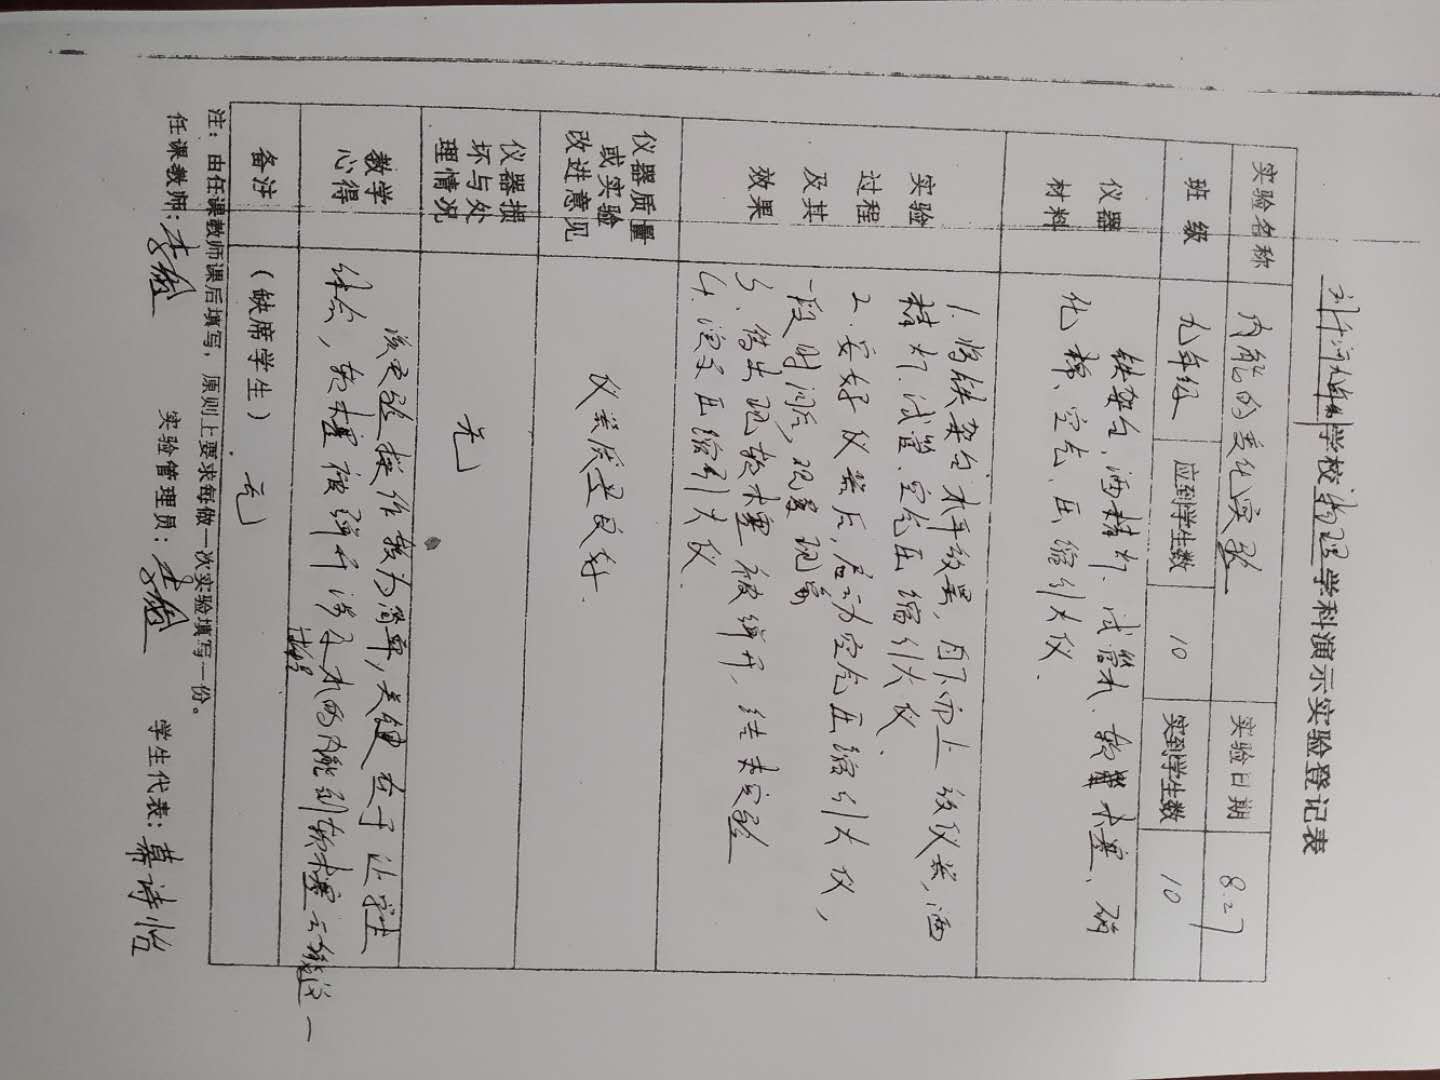 学校物理学科演示实验登记表
实验名称 内能的变化实验 实验日期 8.27
班级 九年级 应到学生数 10 实到学生数 10
仪器材料
铁架台,酒精灯、试管、水、软木塞、硝
化棉、空气压缩引火仪.
实验过程及其效果
1.将铁架台水平放置,自下而上放仪器,酒
精灯、试管、空气压缩引火仪、
2.安好仪器后,启动空气压缩引火仪,
一段时间后,观察现象
3、待出现软木塞被弹开,结束实验
4.演示压缩引火仪.
仪器质量或实验改进意见
仪器质量良好.
仪器损坏与处理情况
无
教学心得
该实验操作较为简单,关键在于让学生
体会,软木塞被弹开涉及水的内能到软木塞
备注
(缺席学生) 无
注:由任课教师课后填写,原则上要求每做一次实验填写一份。
任课教师: 实验管理员: 学生代表: 诗怡